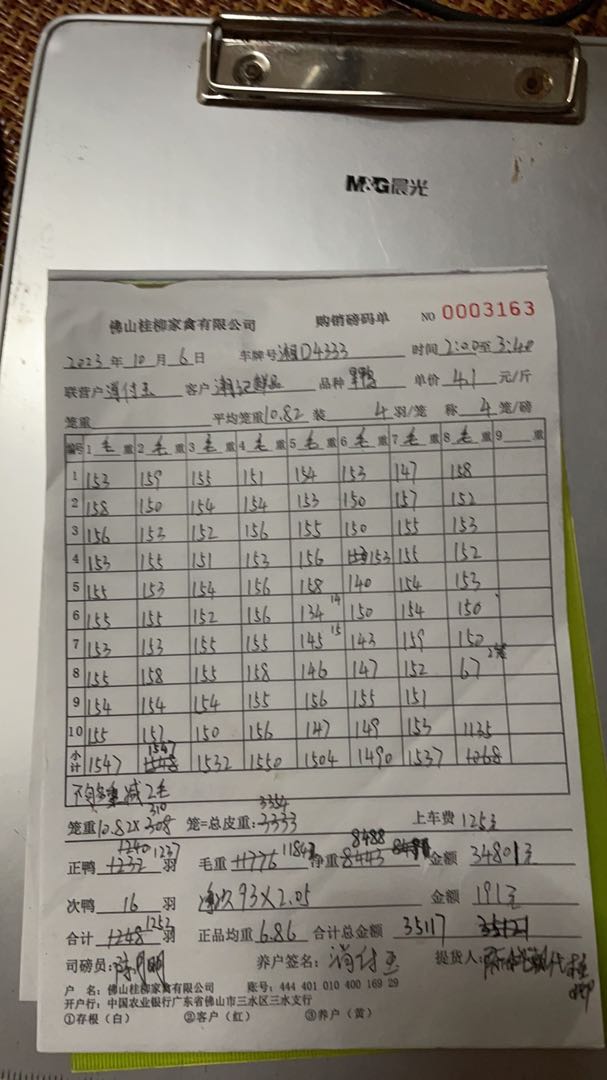 M&G晨光
佛山桂柳家禽有限公司 购销磅码单 NO 0003163
2023年10月6日 车牌号湘D4333 时间2:00至3:40
联营户 客户 品种 单价4.1元/斤
笼重 平均笼重10.82 装4羽/笼 称4笼/磅
编号 1毛重 2毛重 3毛重 4毛重 5毛重 6毛重 7毛重 8毛重 9 重
1 153 159 155 151 154 153 147 158
2 158 150 154 154 153 150 157 152
3 156 153 152 156 155 150 155 153
4 153 155 151 153 156 153 155 152
5 155 153 154 156 158 140 154 153
6 155 155 152 156 134 14 150 154 150
7 153 153 155 155 145 15 143 159 152
8 155 158 155 158 146 147 152 67 2笼
9 154 154 154 155 156 155 151
10 155 152 150 156 147 149 153 1135
小计 1547 1547 1532 1550 1504 1490 1537 1068
减2毛
310 3354
笼重10.82×308 笼=总皮重:3333 上车费1253
1240 1237 11843 8488
正鸭1232羽 毛重11776 净重8443 金额34801元
次鸭16羽 次93×2.05 金额191元
1253
合计1248羽 正品均重6.86 合计总金额35117 35121
司磅员: 养户签名: 提货人:
户 名:佛山桂柳家禽有限公司 账号:444 401 010 400 169 29
开户行:中国农业银行广东省佛山市三水区三水支行
①存根(白) ②客户(红) ③养户(黄)